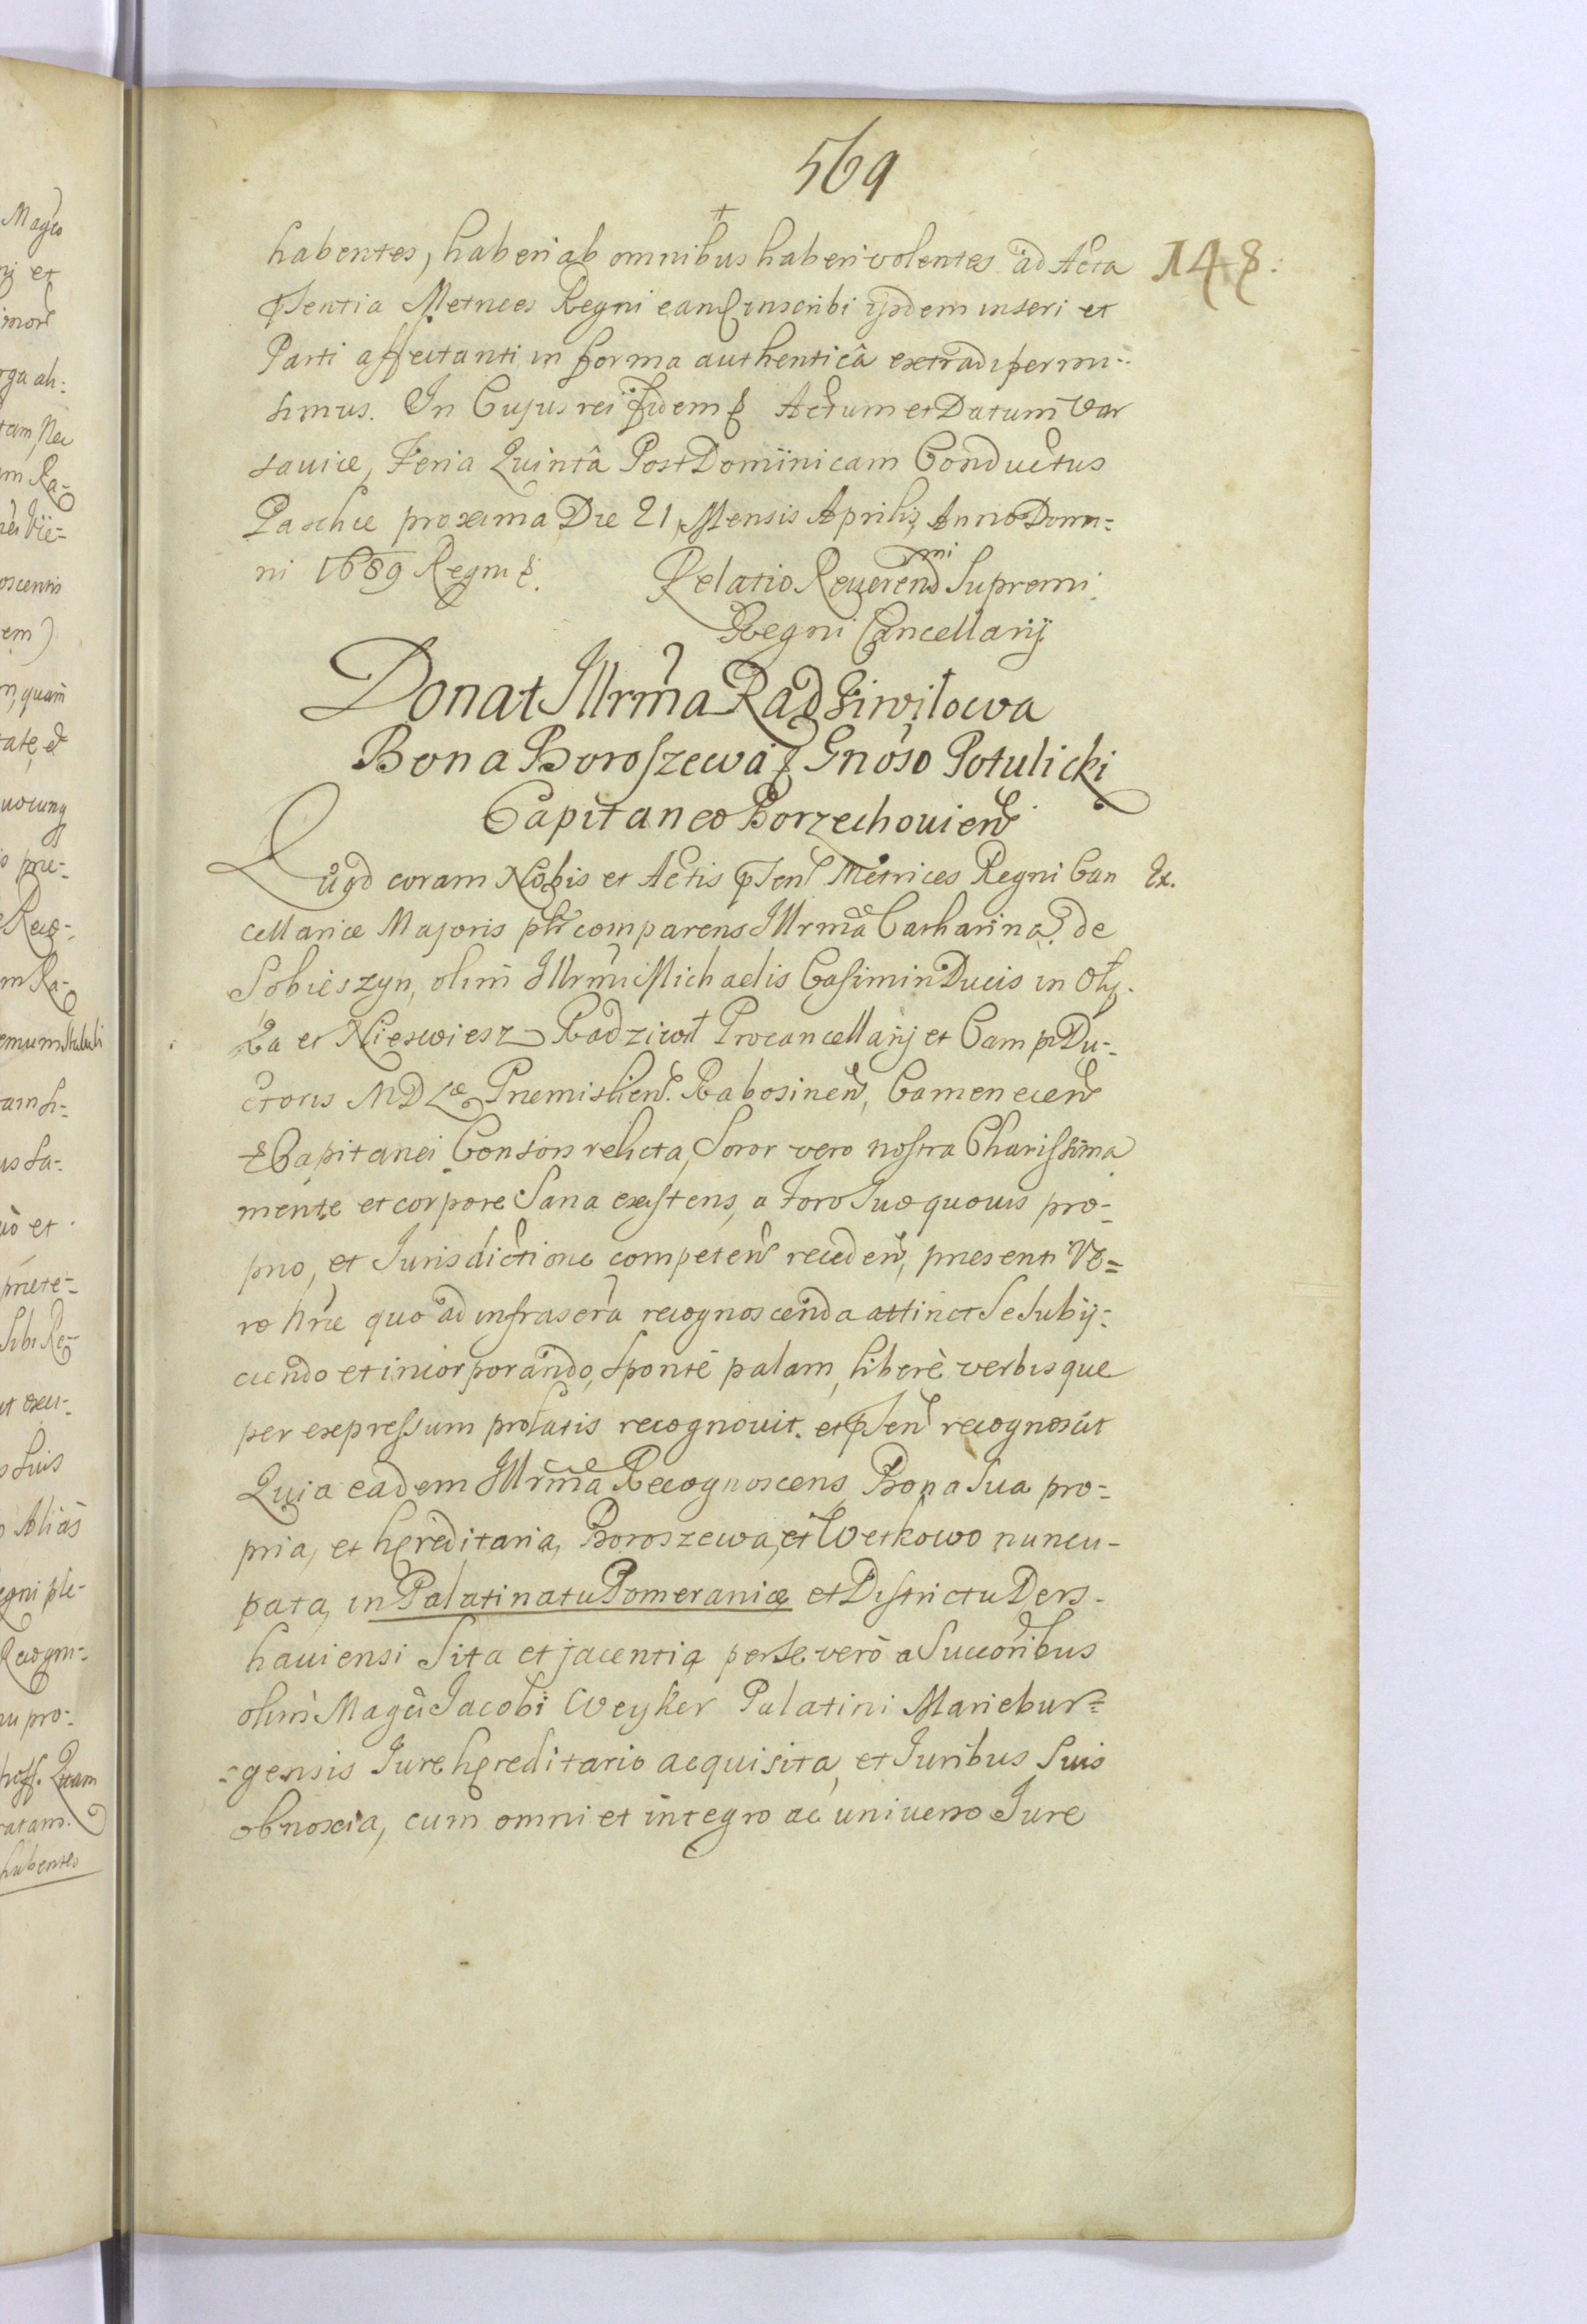 569
habentes, haberi ab omnibus haberi volentes ad Acta 148.
pñsentia Metrices Regni eand inscribi ijsdem inseri et
Parti affectanti in forma authenticâ extradi permi-
simus. In Cujus rei fidem & Actum et Datum Var
saviæ, Feria Quintâ Post Dominicam Conductus
Paschæ proxima Die 21, Mensis Aprilis, Anno Domi=
ni 1689 Regni &. Relatio Reverend mi Supremi
Regni Cancellarij
Donat Illrma Radziwiłowa
Bona Boroszewa & Gnoso Potulicki
Capitaneo Borzechovien
Quod coram Nobis et Actis pñsen Metrices Regni Can Ex.
cellariæ Majoris plr comparens Illrma Catharina de
Sobieszyn, olim Illrmi Michaelis Casimiri Ducis in Oly-
ka et Nieswiesz Radziwił Procancellarij et Camp Du-
ctoris MDLæ Præmislien. Rabosinen, Camenecen
& Capitanei Consors relicta, Soror vero nostra Charissima
mente et corpore Sana existens, a Foro Suo quovis pro-
prio, et Jurisdictione competen receden, præsenti Ve=
ro hńc quo ad infrascra recognoscenda attinet Se Subij-
ciendo et incorporando, Sponte palam, liberè verbisque
per expressum prolatis recognovit. et pñsen recognoscit
Quia eadem Illrma Recognoscens Bona Sua pro-
pria, et hęreditaria, Boroszewa, et Wetkowo nuncu-
pata, in Palatinatu Pomeraniæ et Districtu Ders-
haviensi Sita et jacentia per Se verò a Succoribus
olim Magci Jacobi Weyher Palatini Mariebur=
=gensis Jure hęreditario acquisita, et Juribus Suis
obnoxia, cum omni et integro ac universo Jure